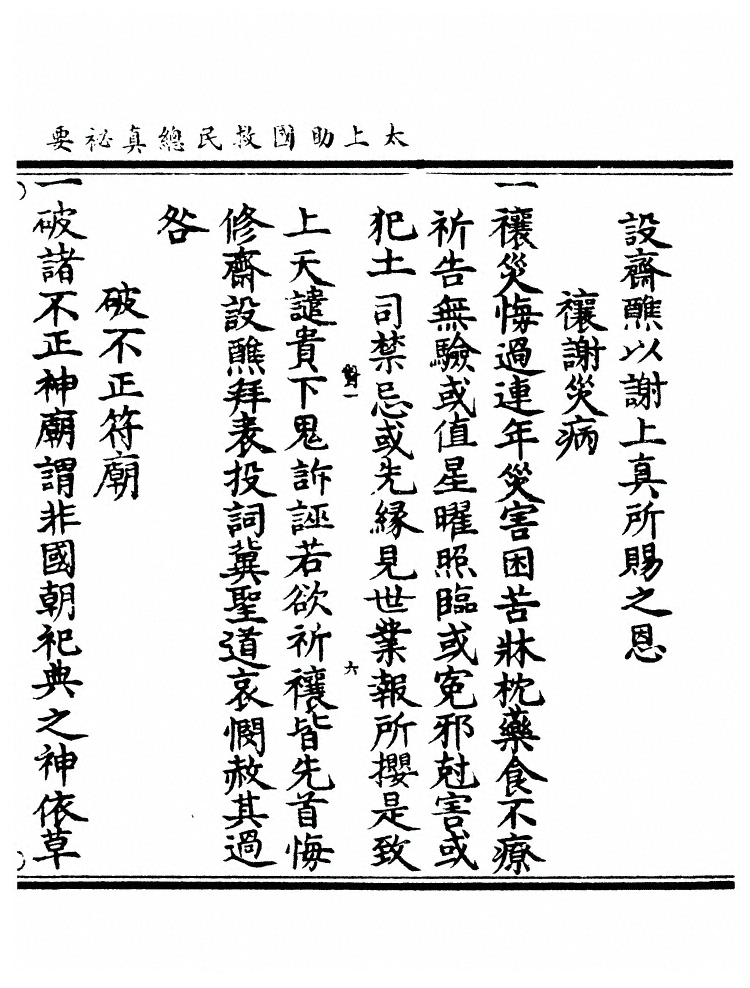 太上助國救民總真祕要
設齋醮以謝上真所賜之恩
禳謝災病
一禳災悔過連年災害困苦牀枕藥食不療
祈告無驗或值星曜照臨或寃邪尅害或
犯土司禁忌或先緣見世業報所攖是致
上天譴責下鬼訴誣若欲祈禳皆先首悔
六
修齋設醮拜表投詞冀聖道哀憫赦其過
咎
破不正符廟
一破諸不正神廟謂非國朝祀典之神依草